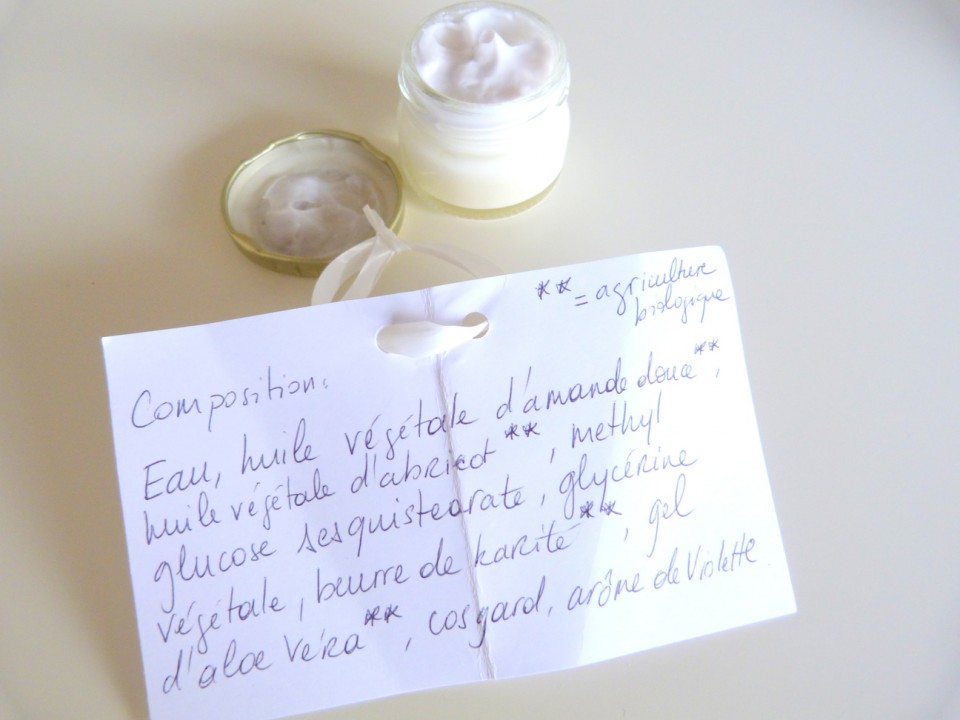 ** = agriculture
biologique
Composition:
Eau, huile végétale d'amande douce**,
huile végétale d'abricot**, methyl
glucose sesquistearate, glycérine
végétale, beurre de karité**, gel
d'aloe véra**, cosgard, arôme de Violette.